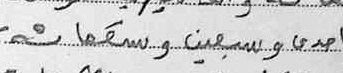 احدى وسبعين وستمائة